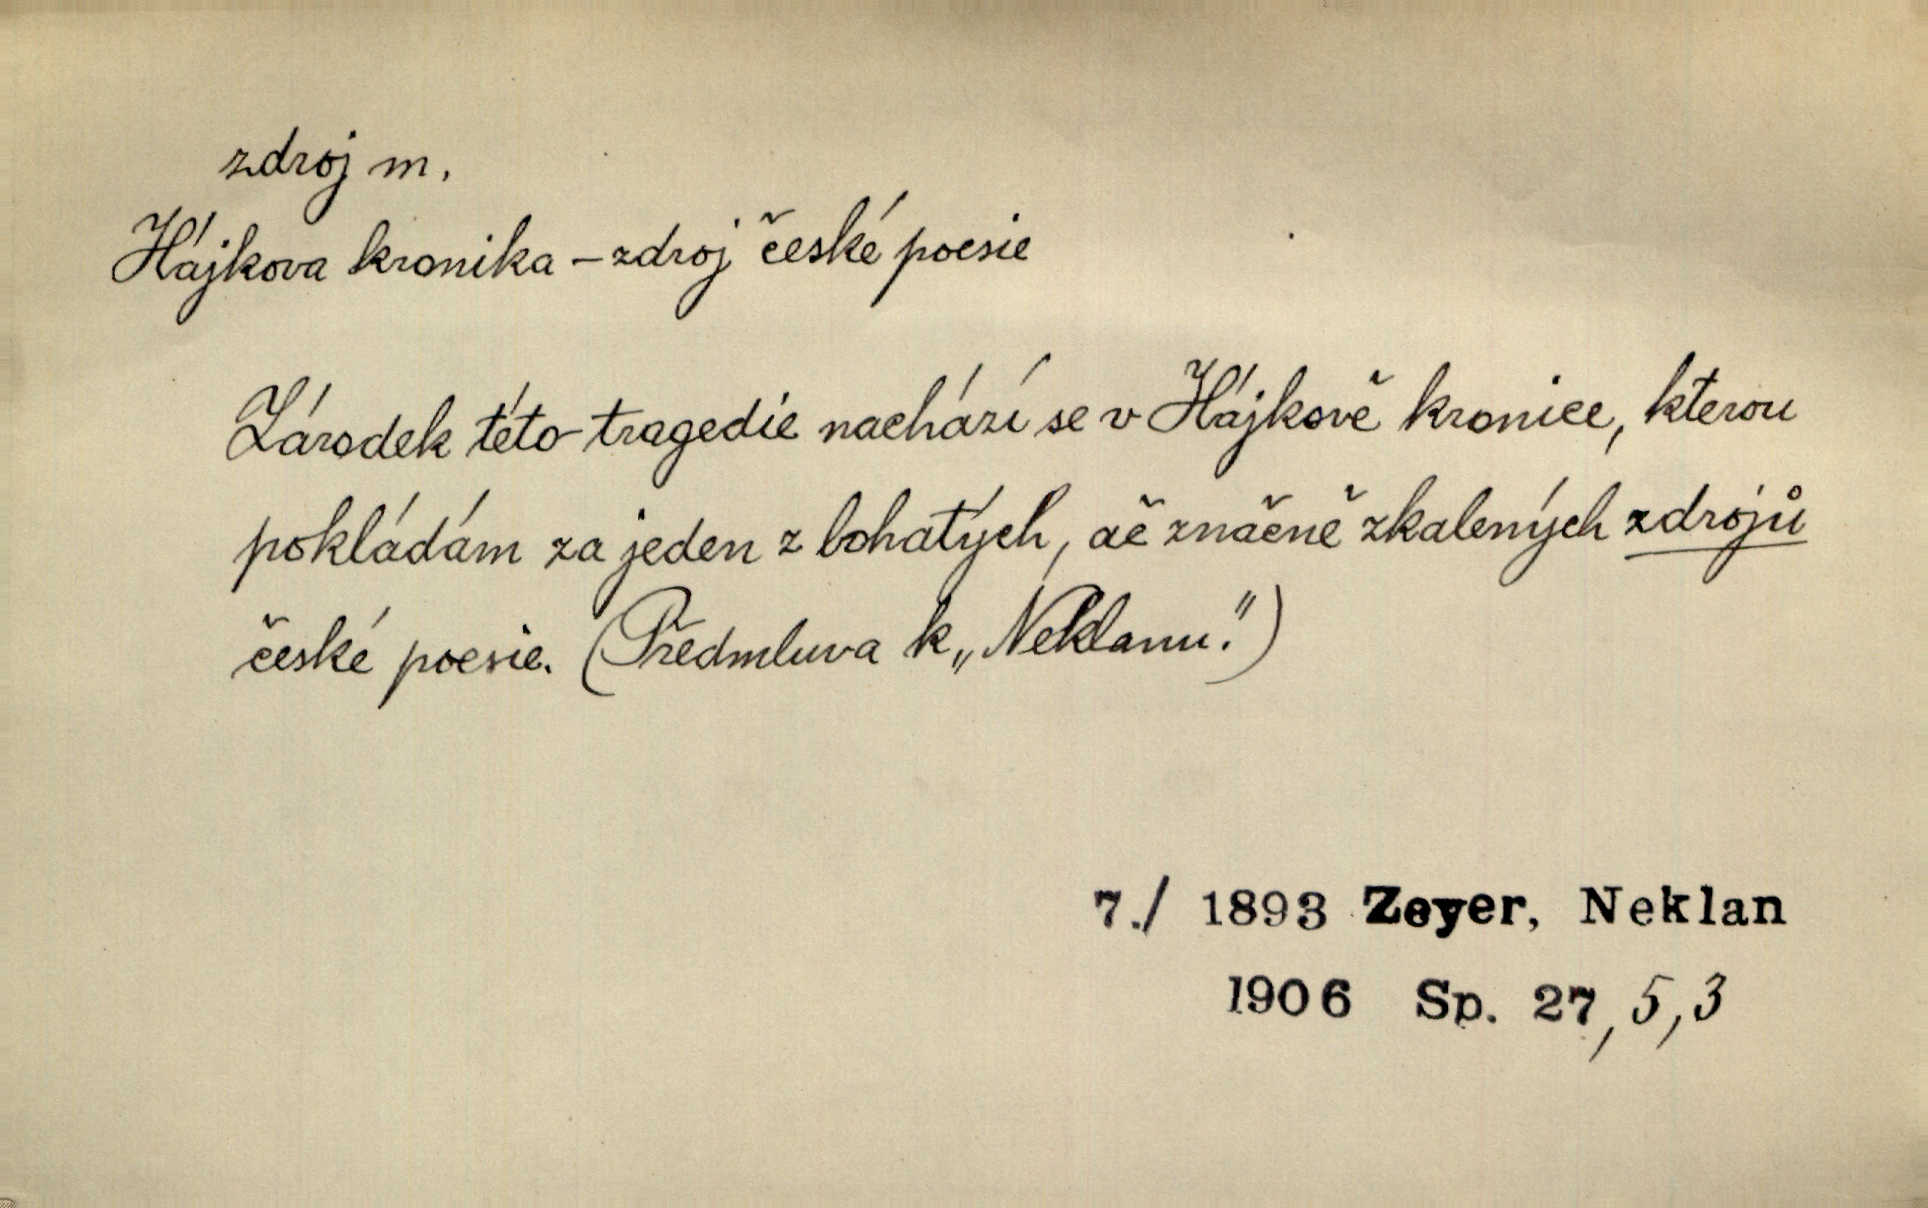 zdroj m.
Hájkova kronika – zdroj české poesie
Zárodek této tragedie nachází se v Hájkově kronice, kterou
pokládám za jeden z bohatých, ač značně zkalených zdrojů
české poesie. (Předmluva k „Neklanu.")
7./ 1893 Zeyer, Neklan
1906 Sp. 27, 5, 3